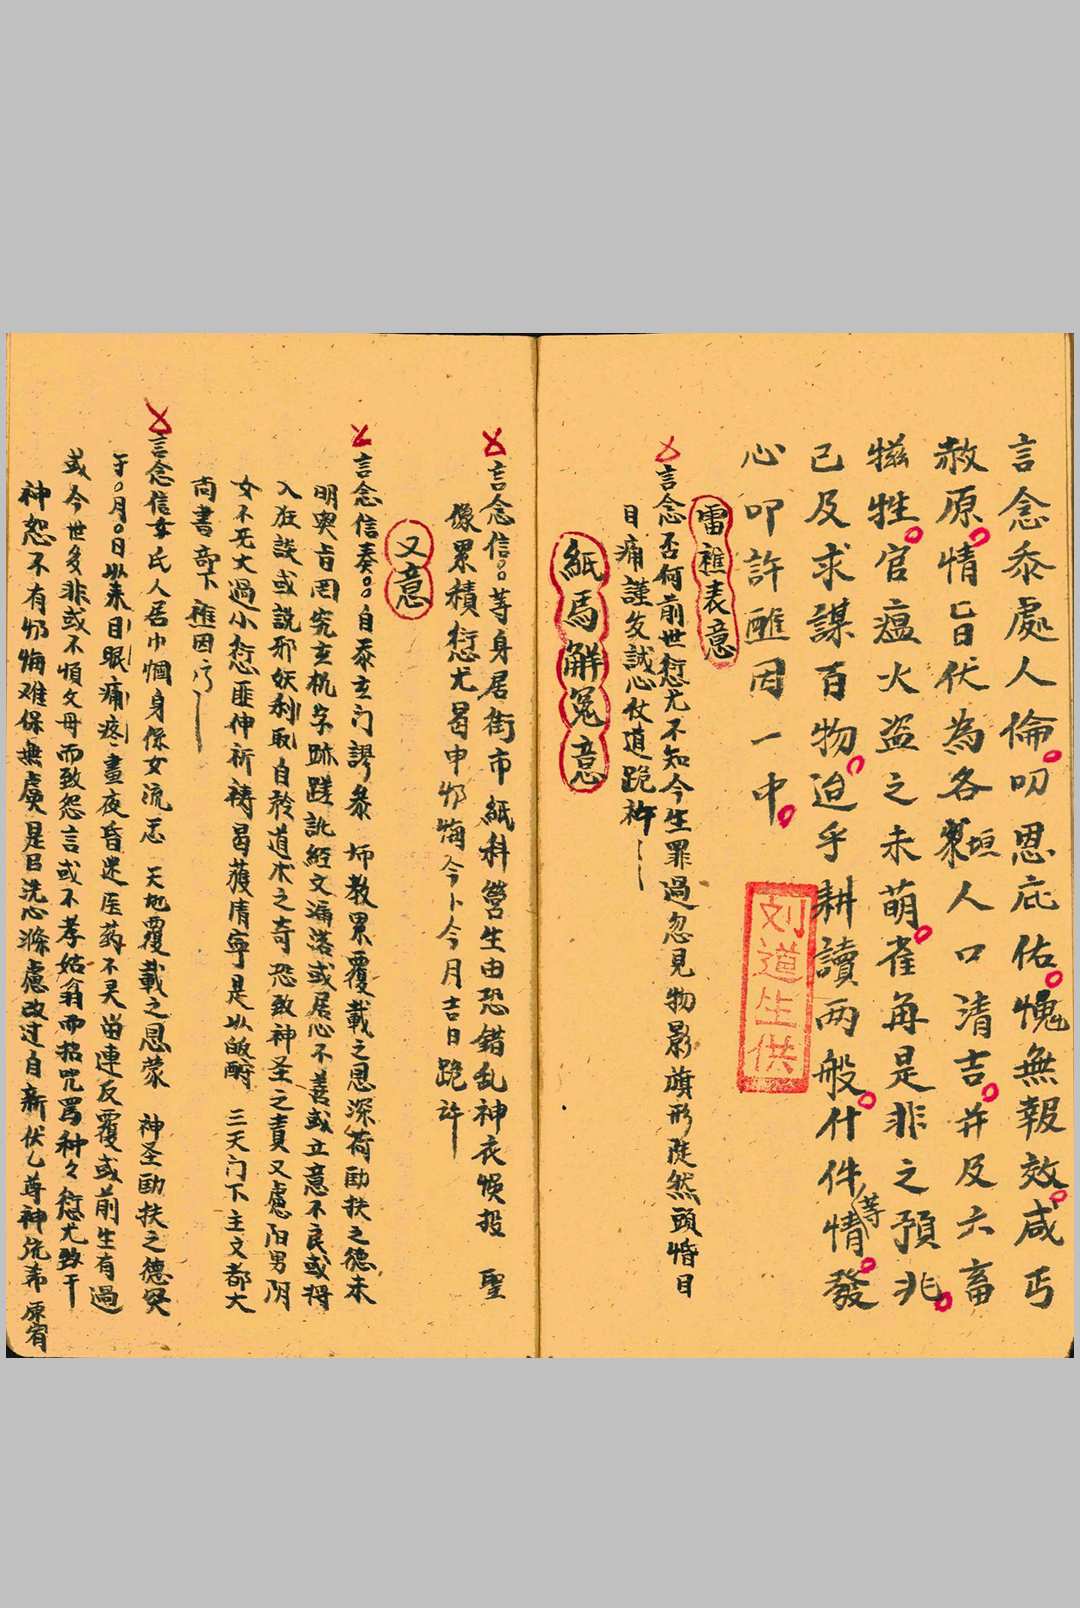 言念忝處人倫叨恩庇佑愧無報效咸丐
赦原情旨伏為各寨垣人口清吉并及六畜
犠牲官瘟火盗之未萌雀角是非之預兆
已及求謀百物迨乎耕讀两般什件等情發
心叩許醮因一中
刘道生供
雷醮表意
言念否何前世愆尤不知今生罪過忽見物影旗形陡然頭惛目
目痛謹发誠心仗道跪許
紙馬解冤意
言念信等身居街市紙科營生由恐錯乱神衣悮投 聖
像累積愆尤曷申忏悔今卜今月吉日跪許
又意
言念信奏自忝玄门謬叅 师教累覆載之恩深荷匡扶之德未
明奥旨罔究玄机字跡蹉訛經文漏落或居心不善或立意不良或將
入狂談或説邪妖利取自矜道术之奇恐致神圣之責又慮阳男阴
女不无大過小愆匪伸祈禱曷獲清寧是以敬酧 三天门下主文都大
尚書部下醮因
言念信女氏人居巾幗身係女流忝 天地覆載之恩蒙 神圣匡扶之德哭
于月日以来目眼痛疼晝夜昏迷医药不灵留連反覆或前生有過
或今世多非或不順父母而致怨言或不孝姑翁而招咒罵种々愆尤致干
神恕不有忏悔难保無虞是以洗心滌慮改过自新伏乞尊神流希原宥